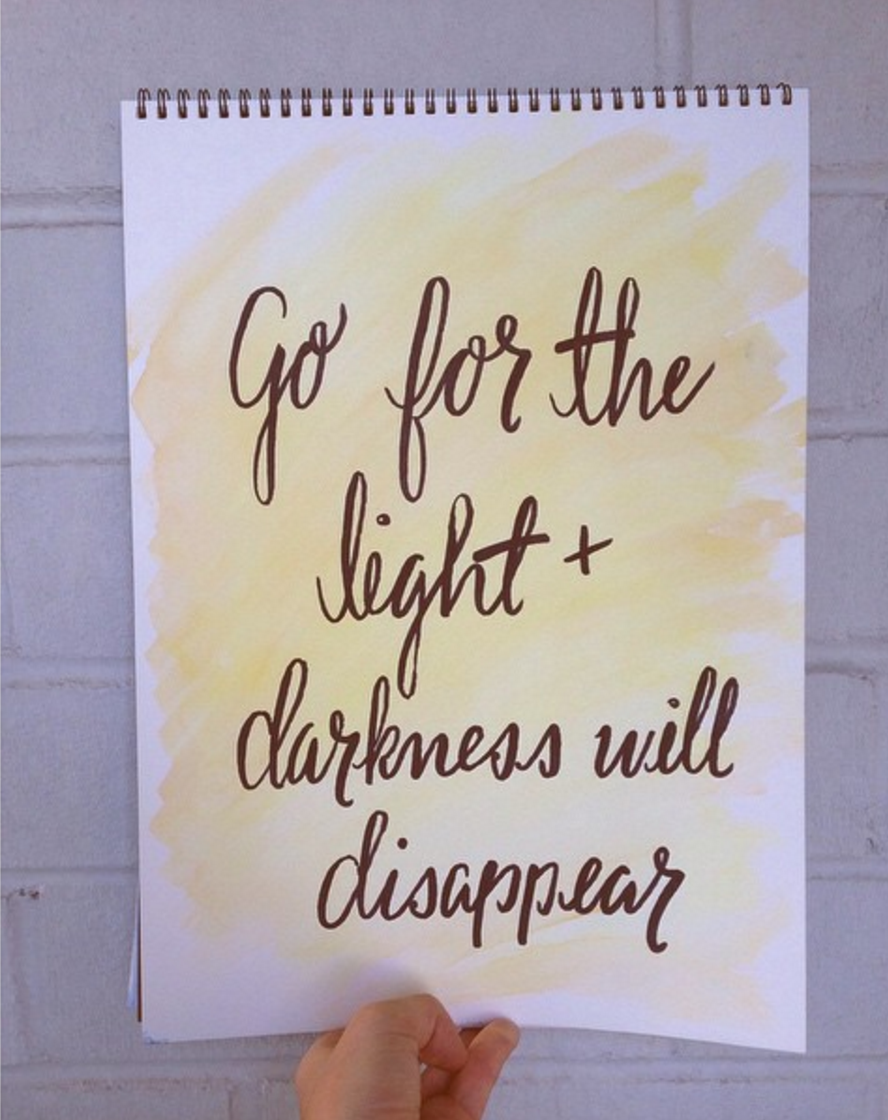 Go for the
light +
darkness will
disappear